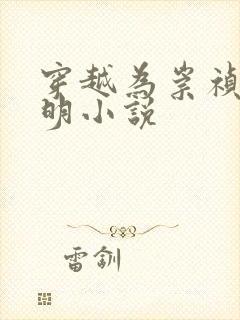 穿越為崇禎
明小說
雷釧